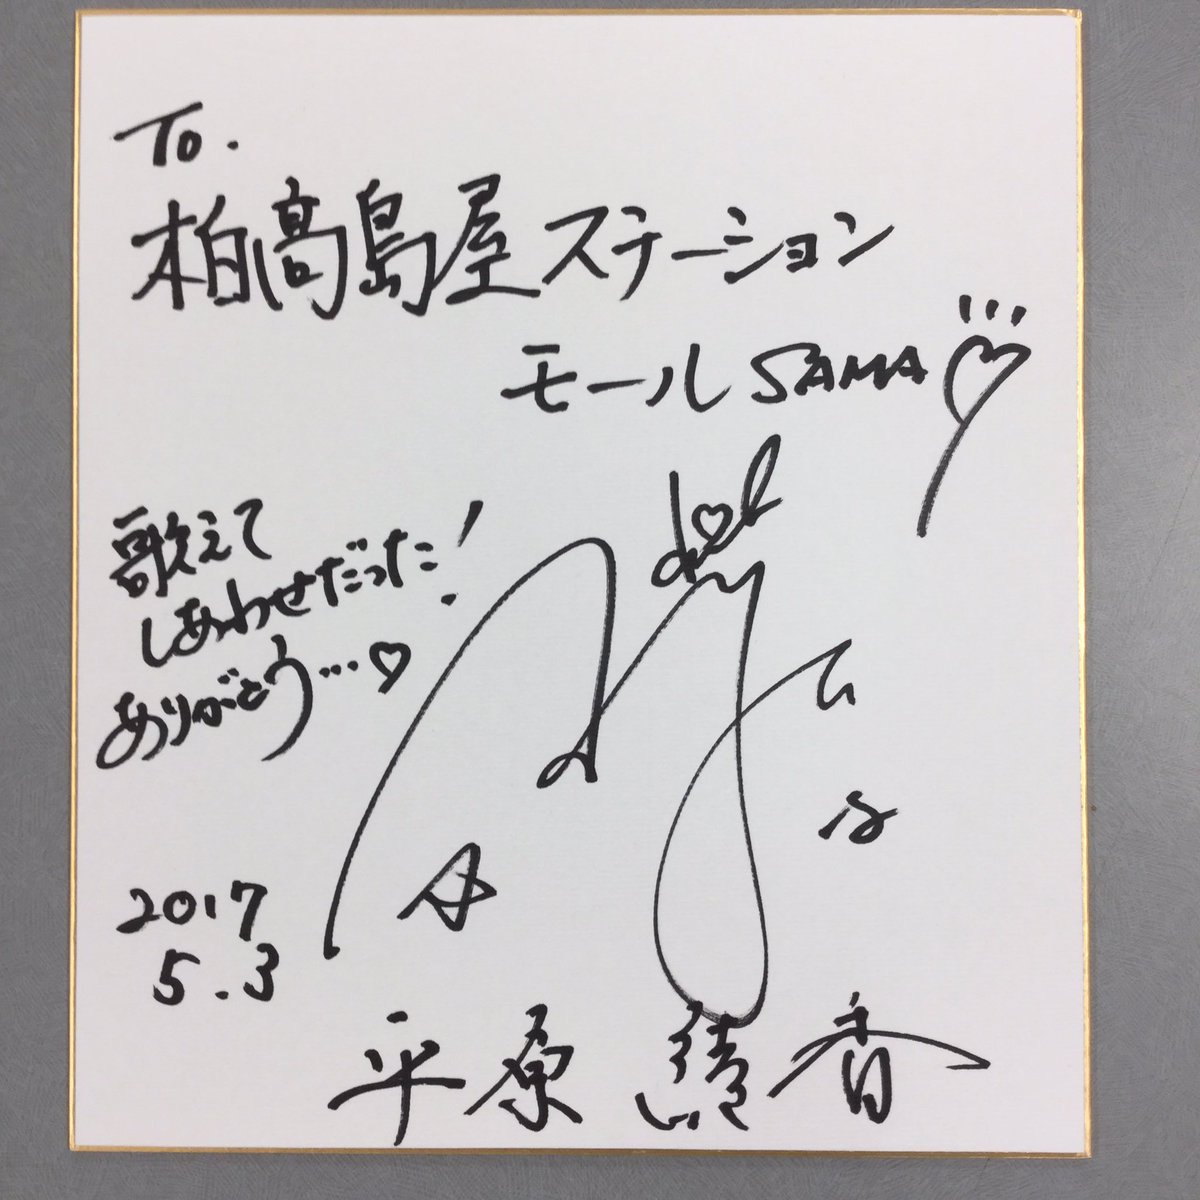 To.
柏髙島屋ステーション
モールSAMA♡
歌えて
しあわせだった!
ありがとう…♡
2017
5.3
平原綾香